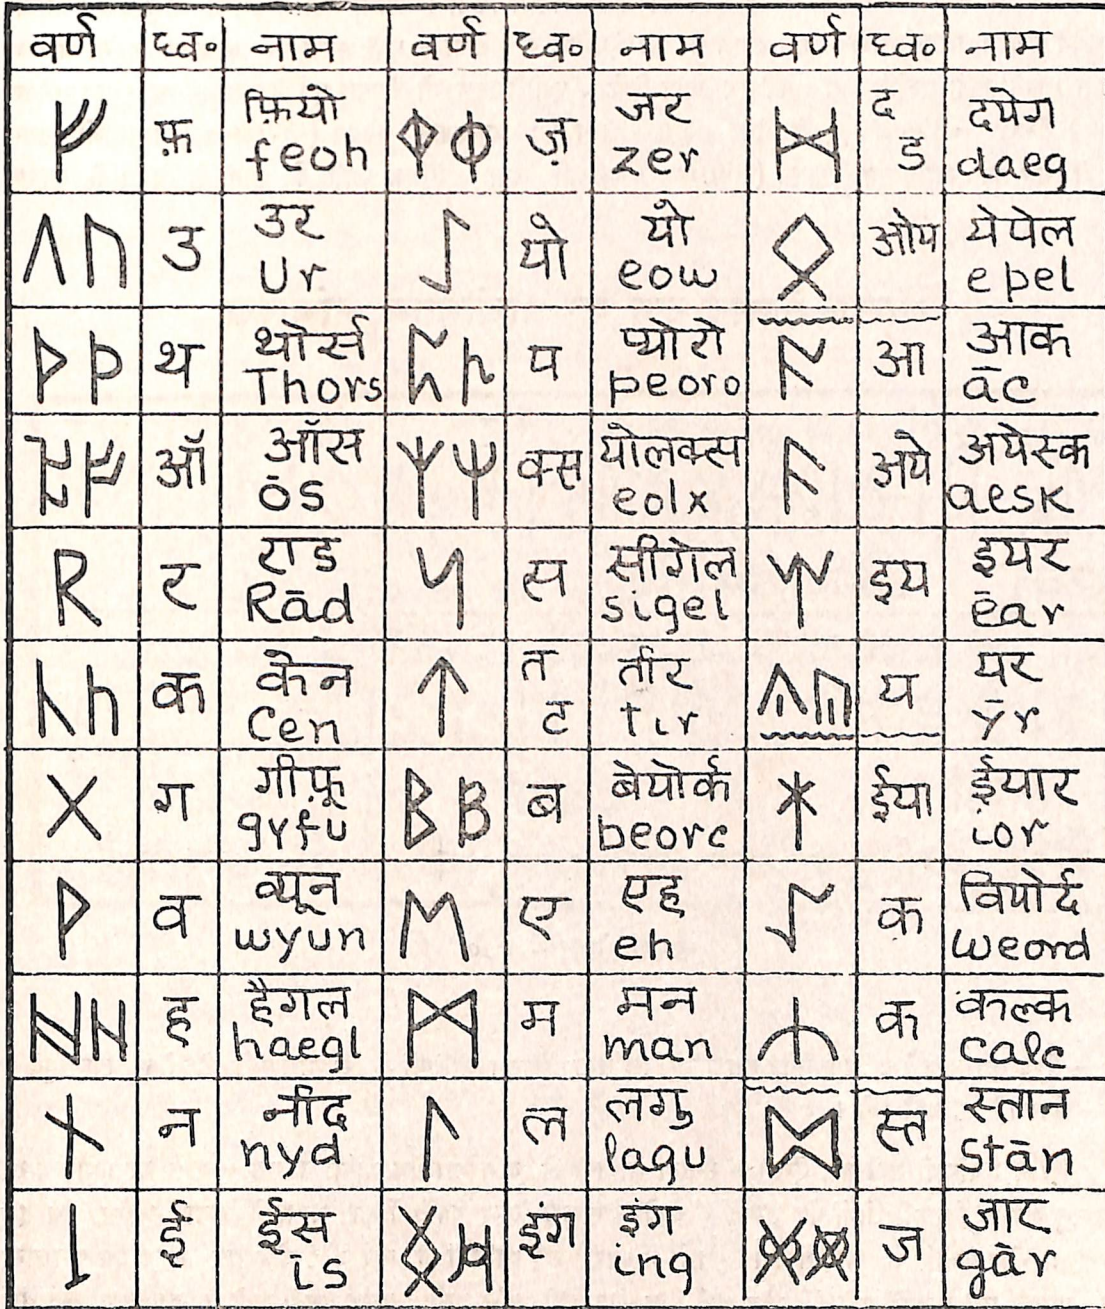 वर्ण ध्व॰ नाम वर्ण ध्व॰ नाम वर्ण ध्व॰ नाम
ᚠ फ़ फ़ियो feoh ज़ जर zer ᛞ द ड दयेग daeg
ᚢ उ उर Ur ᛇ यो यो eow ᛟ ओय येपेल epel
ᚦ थ थोर्स Thors ᛈ प प्योरो peoro ᚪ आ आक āc
ᚩ ऑ ऑस ōs ᛉ ᛘ क्स योलक्स eolx ᚫ अये अयेस्क aesk
ᚱ र राड Rād ᛋ स सीगेल sigel इय इयर ēar
ᚳ क केन Cen ᛏ त ट तीर tir ᚣ य यर ȳr
ᚷ ग गीफ़ू gyfu ᛒ ब बेयोर्क beorc ᛡ ईया ईयार ior
ᚹ व व्यून wyun ᛖ ए एह eh क वियोर्द weord
ᚻ ᚺ ह हैगल haegl ᛗ म मन man क कल्क calc
ᚾ न नीद nyd ᛚ ल लगु lagu ᛥ स्त स्तान stān
ᛁ ई ईस is ᛝ इंग इंग ing ᚸ ज जार gār